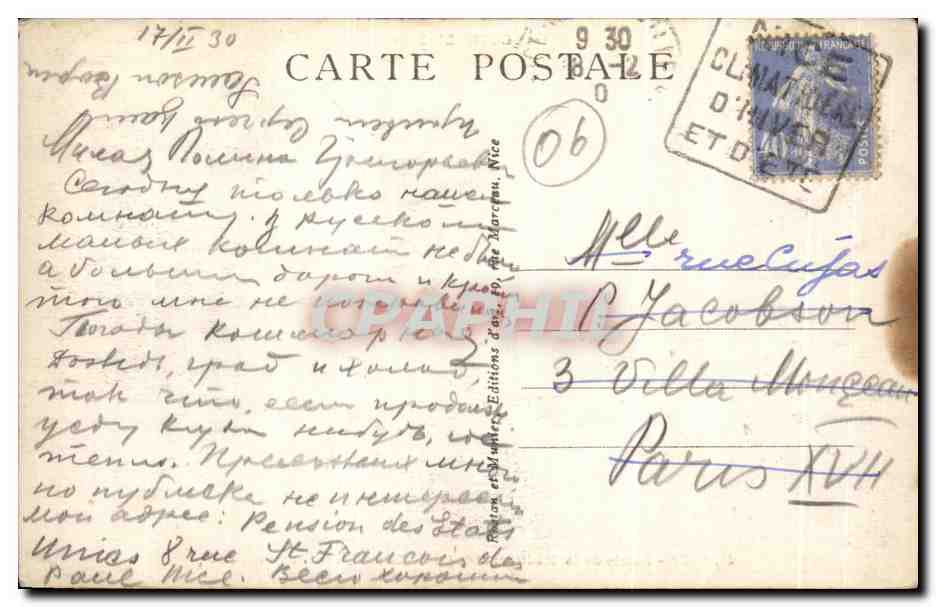 17/II 30
CARTE POSTALE
9 30
8 -2
CE
CLIMATIQUE
D'HIVER
ET D'ÉTÉ
REPUBLIQUE FRANÇAISE
40
POSTES
06
Милая Полина Григорьевна
Сегодня только нашел
комнату. В русском
маленьких комнат не было
а большая дорога и кроме
того мне не понравилось
Погода кошмарная
Дождь, град и холод,
так что, если продолж.
уеду куда нибудь, где
тепло. Приезжих много
но публика не интересная
мой адрес: Pension des Etats
Unies 8 rue St. François de
Paule Nice. Всего хорошего
Rostan et Munier, Editions d'art, 19, rue Marceau, Nice
Mlle rue Cujas
P. Jacobson
3 Villa Mongeau
Paris XVII
CPARHII